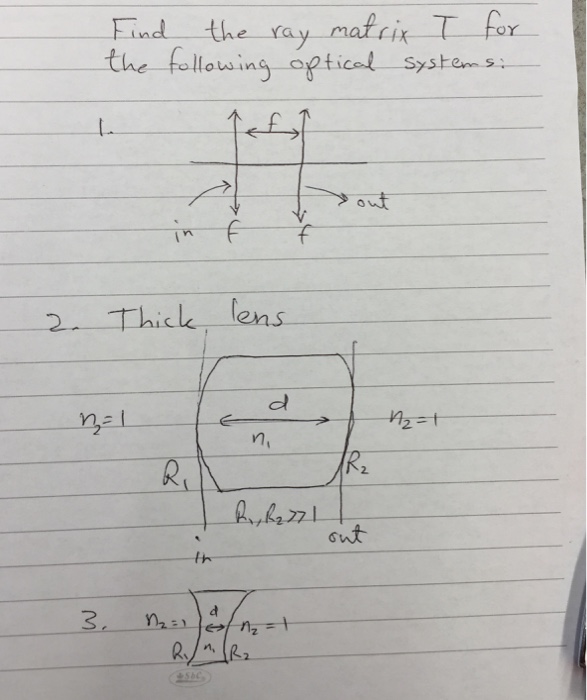 Find the ray matrix T for
the following optical systems:
1.
f
out
in f f
2. Thick lens
d
n₂=1 n₁ n₂=1
R₁ R₂
R₁, R₂>>1
in out
3. n₂=1 d n₂=1
R₁ n₁ R₂